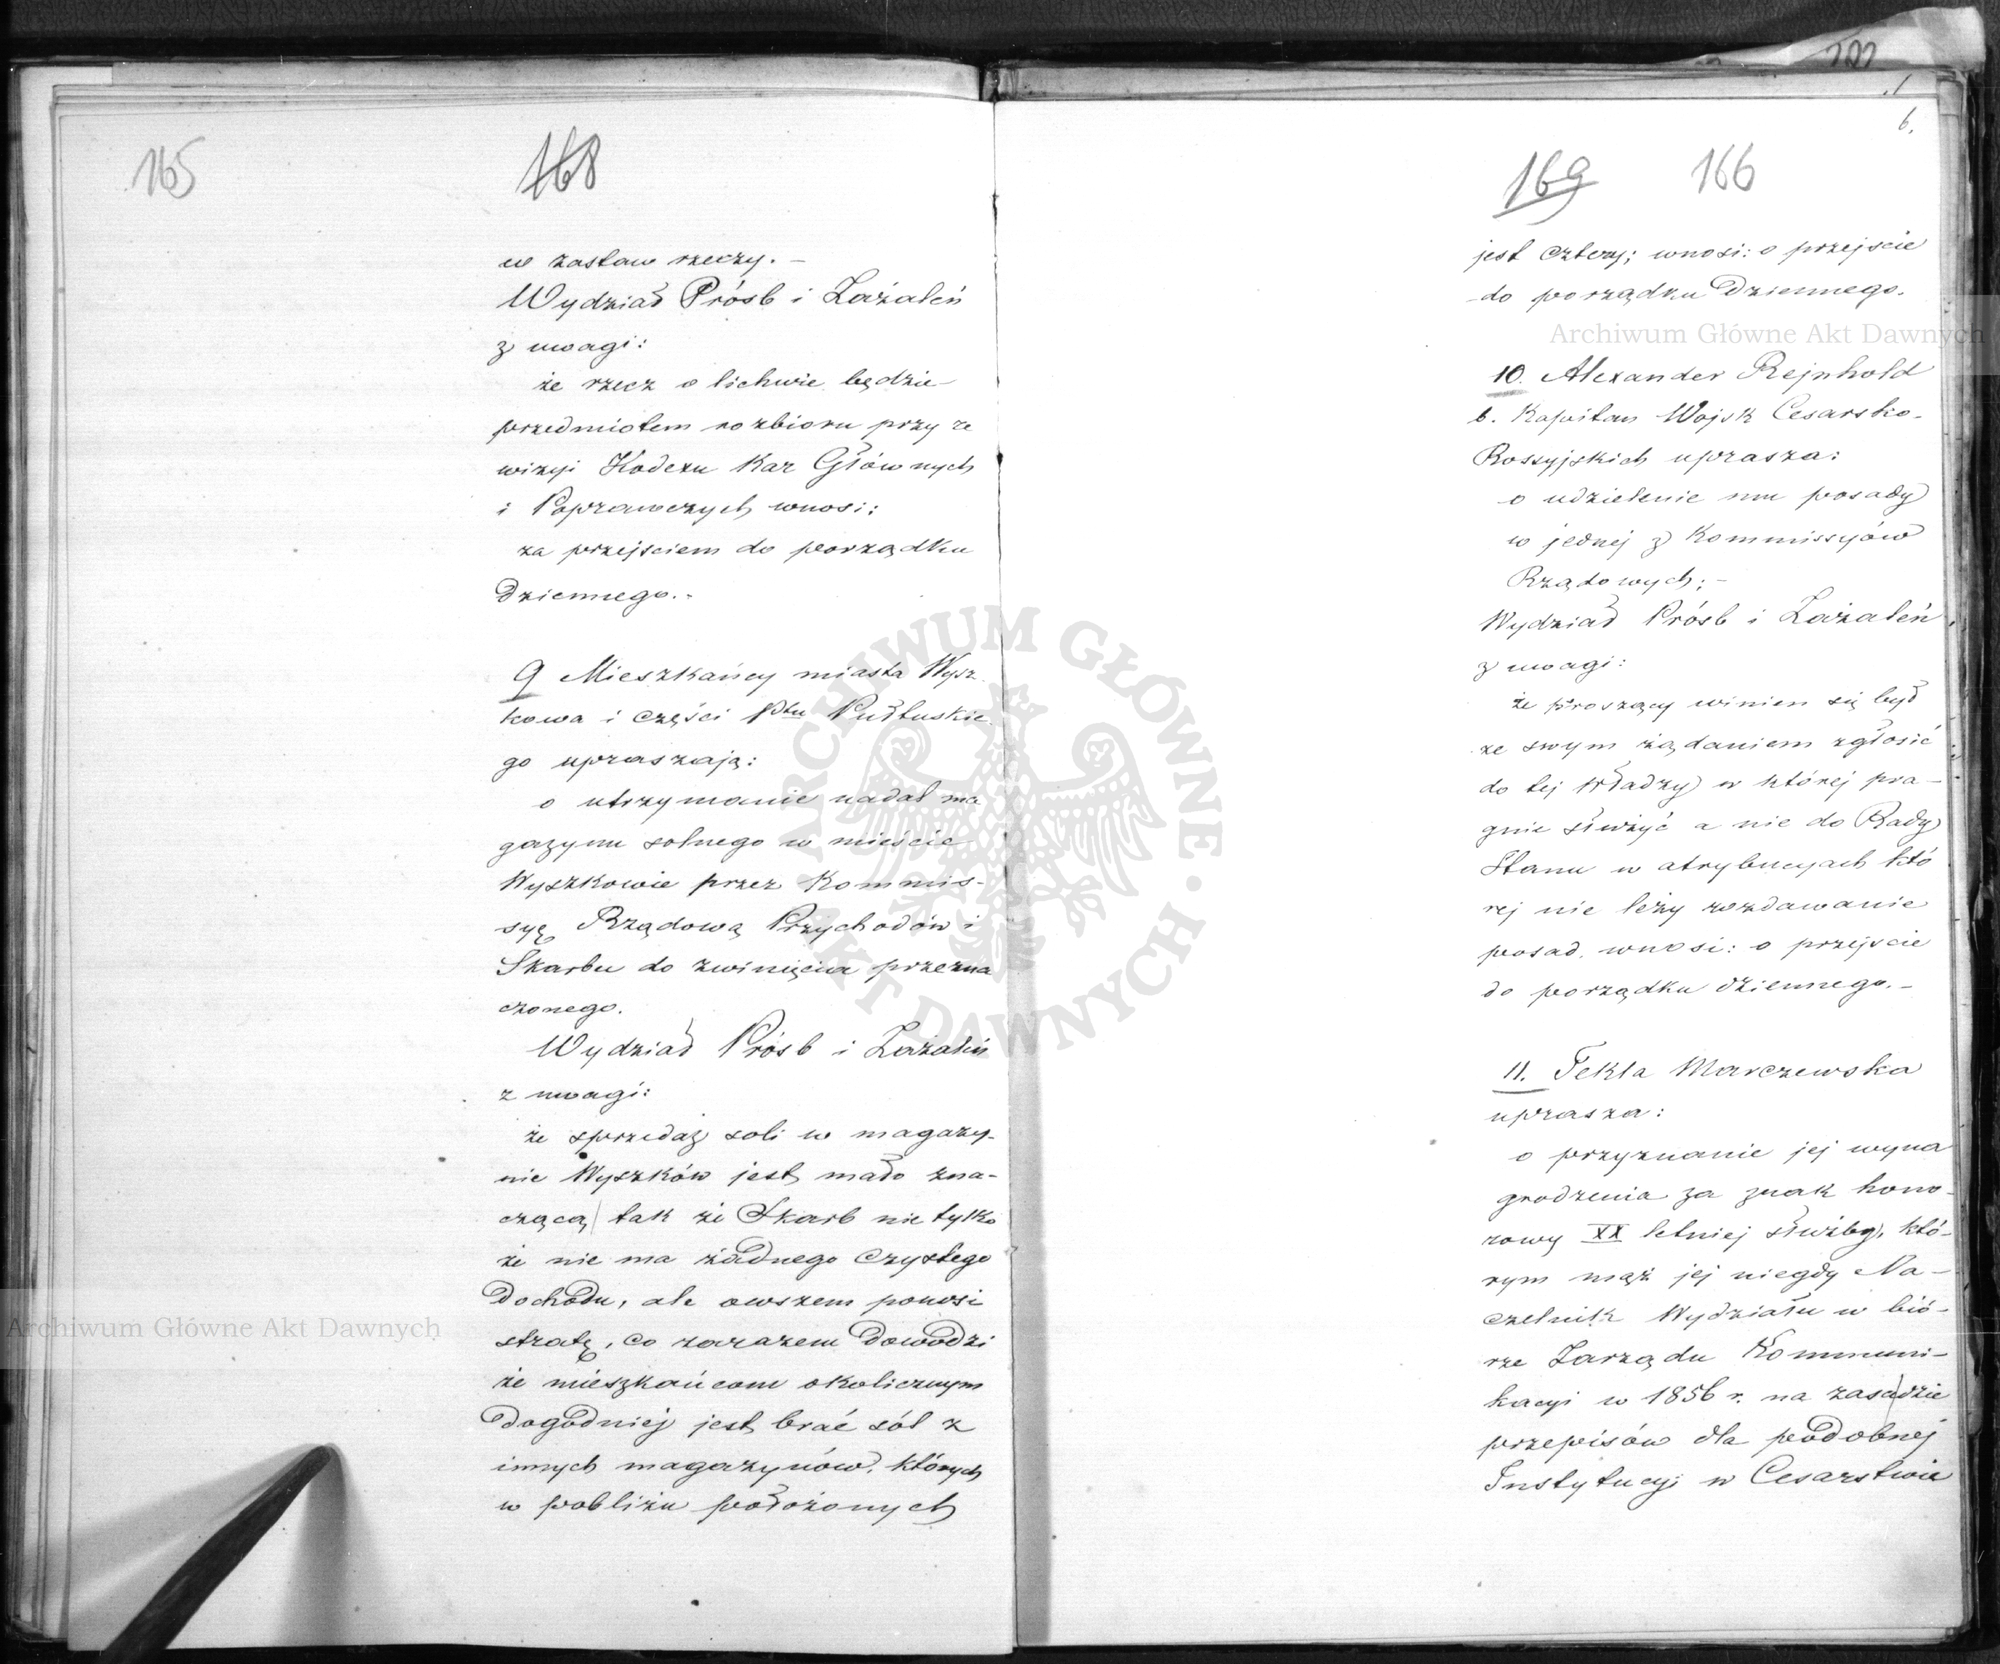 165
168
w zastaw rzeczy. –
Wydział Próśb i Zażaleń
z uwagi:
że rzecz o lichwie będzie
przedmiotem rozbioru przy re
wizyi Kodexu Kar Głównych
i Poprawczych wnosi:
za przejściem do porządku
Dziennego.-
9 Mieszkańcy miasta Wysz-
kowa i części Ptu Pułtuskie
go upraszają:
o utrzymanie nadal ma
gazynu solnego w mieście
Wyszkowie przez Kommis-
syę Rządową Przychodów i
Skarbu do zwinięcia przezna
czonego.
Wydział Próśb i Zażaleń
z uwagi:
że sprzedaż soli w magazy-
nie Wyszków jest mało zna-
czącą tak że Skarb nie tylko
że nie ma żadnego czystego
Dochodu, ale owszem ponosi
stratę, co zarazem Dowodzi
że mieszkańcom okolicznym
Dogodniej jest brać sól z
innych magazynów, których
w pobliżu położonych
6.
169 166
jest cztery; wnosi: o przejście
do porządku Dziennego.
10. Alexander Rejnhold
b. Kapitan Wojsk Cesarsko-
Rossyjskich uprasza:
o udzielenie mu posady
w jednej z Kommissyów
Rządowych; –
Wydział Próśb i Zażaleń
z uwagi:
że proszący winien się był
ze swym żądaniem zgłosić
do tej Władzy w której pra-
gnie służyć a nie do Rady
Stanu w atrybucyach któ
rej nie leży rozdawanie
posad, wnosi: o przejście
do porządku dziennego. –
11. Tekla Marczewska
uprasza:
o przyznanie jej wyna
grodzenia za znak hono-
rowy XX letniej służby, któ-
rym mąż jej niegdy Na-
czelnik Wydziału w bió-
rze Zarządu Kommuni-
kacyi w 1856 r. na zasadzie
przepisów dla podobnej
Instytucyi w Cesarstwie
Archiwum Główne Akt Dawnych
Archiwum Główne Akt Dawnych
ARCHIWUM GŁÓWNE AKT DAWNYCH